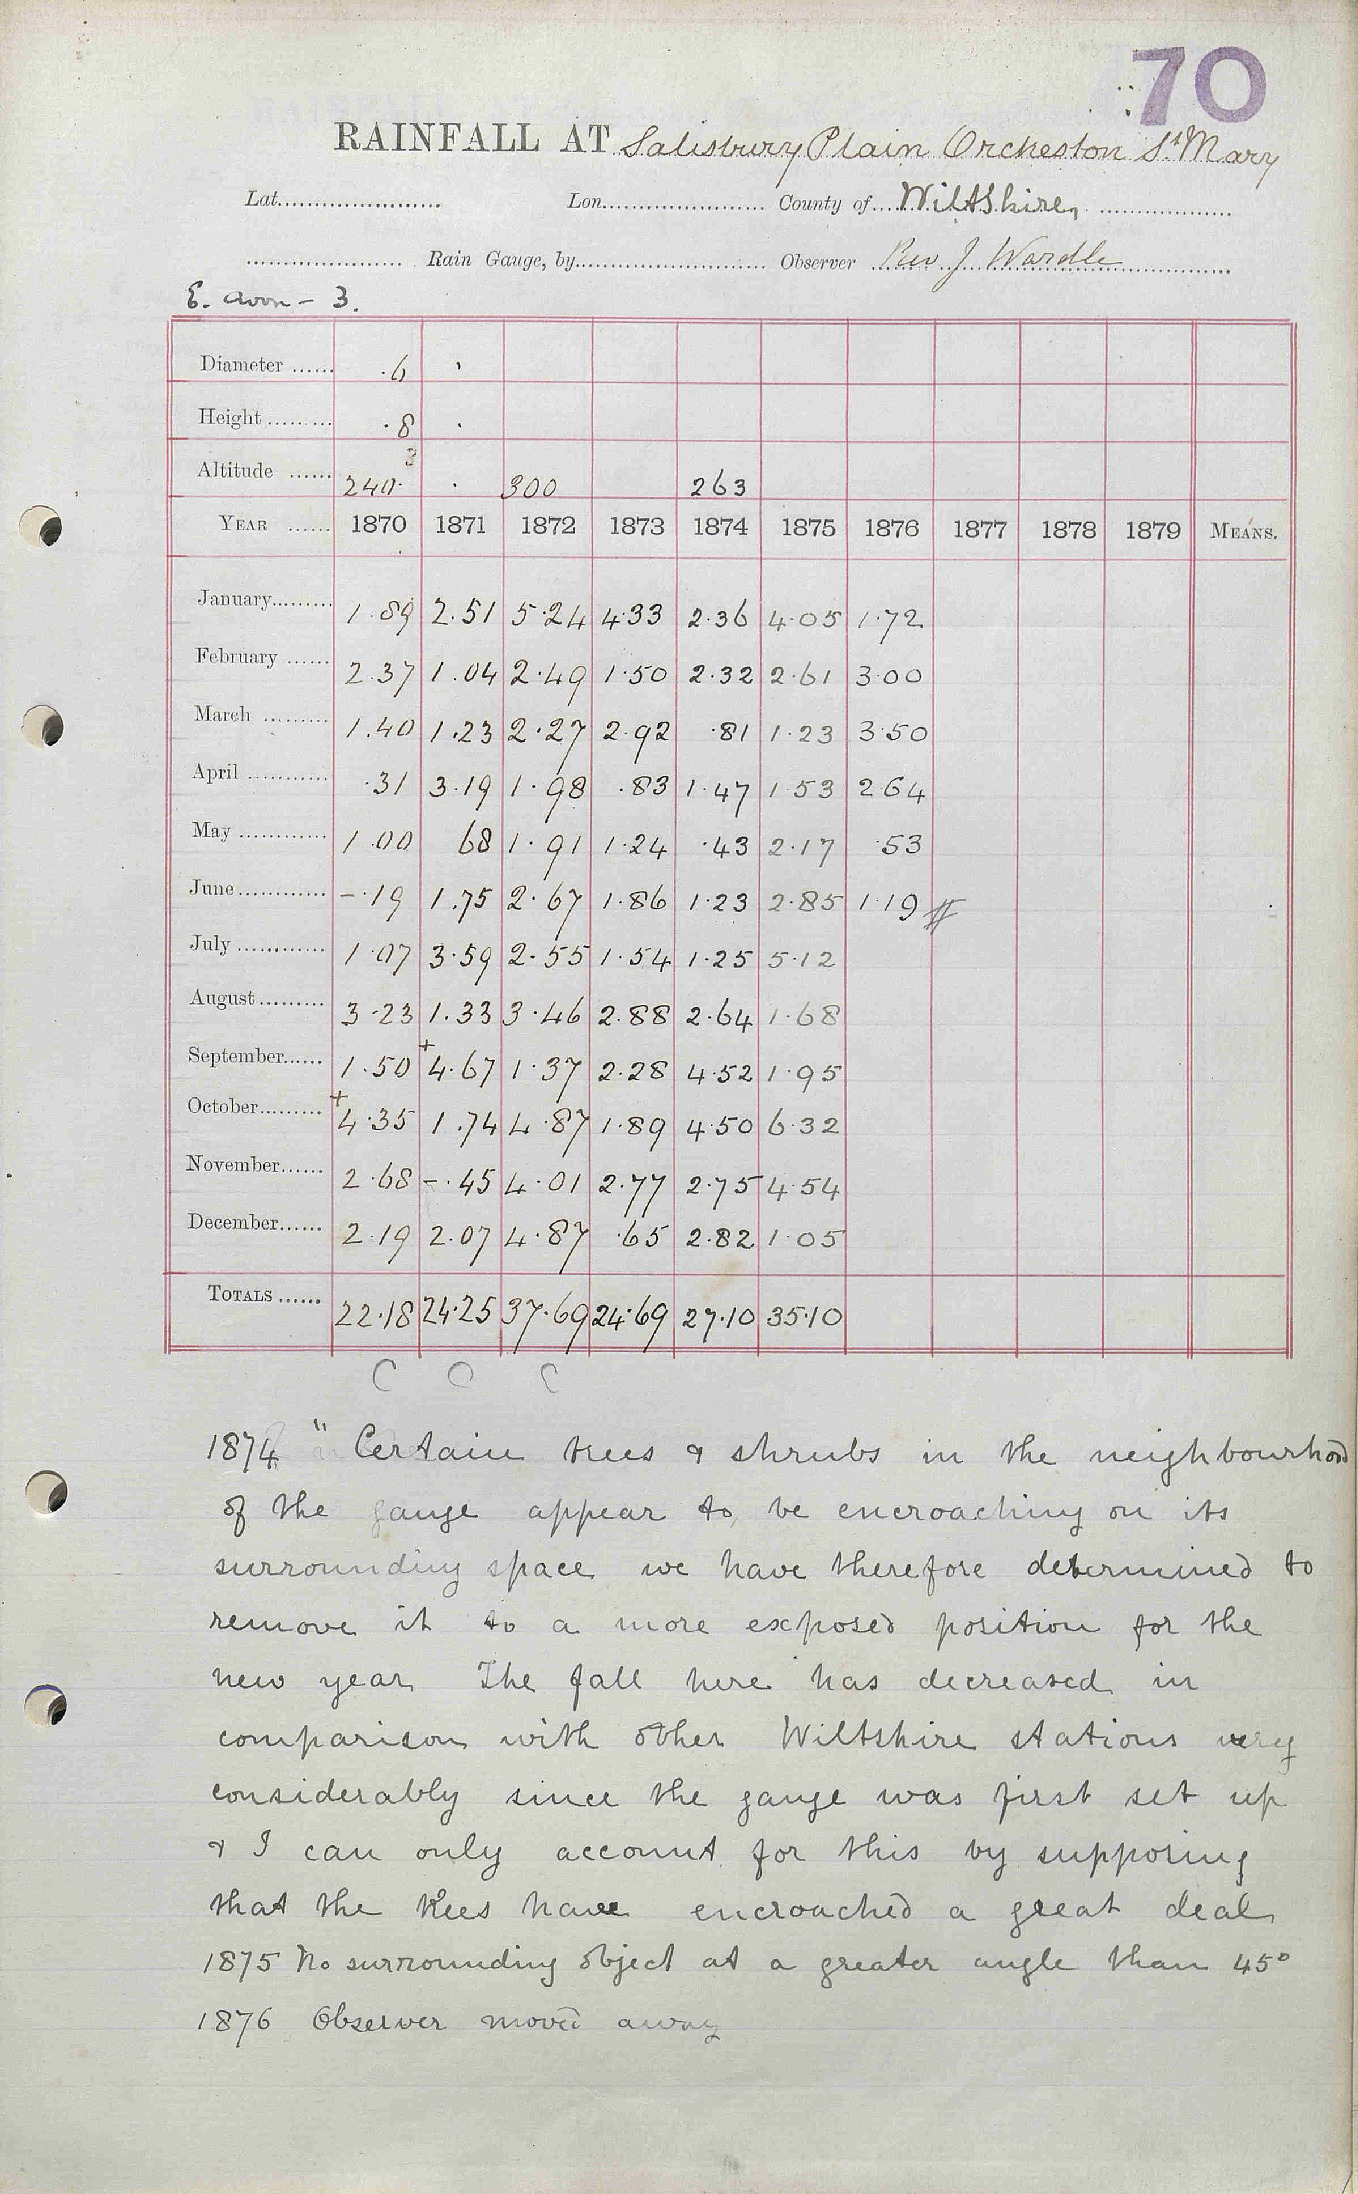 70
RAINFALL AT Salisbury Plain Orcheston St Mary
Lat...................... Lon...................... County of....Wiltshire....................
...................... Rain Gauge, by.......................... Observer Rev J. Wardle
E. Avon - 3.
Diameter ...... .6 '
Height ......... .8 .
3
Altitude ...... 240. . 300 263
YEAR ...... 1870 1871 1872 1873 1874 1875 1876 1877 1878 1879 MEANS.
January......... 1.89 2.51 5.24 4.33 2.36 4.05 1.72
February ...... 2.37 1.04 2.49 1.50 2.32 2.61 3.00
March ......... 1.40 1.23 2.27 2.92 .81 1.23 3.50
April ........... .31 3.19 1.98 .83 1.47 1.53 2 64
May ............ 1.00 68 1.91 1.24 .43 2.17 .53
June............ -.19 1.75 2.67 1.86 1.23 2.85 1.19 #
July ............ 1.07 3.59 2.55 1.54 1.25 5.12
August ......... 3.23 1.33 3.46 2.88 2.64 1.68
September...... 1.50 +4.67 1.37 2.28 4.52 1.95
October......... +4.35 1.74 4.87 1.89 4.50 6.32
November...... 2.68 -.45 4.01 2.77 2.75 4.54
December...... 2.19 2.07 4.87 .65 2.82 1.05
TOTALS ...... 22.18 24.25 37.69 24.69 27.10 35.10
C O C
1874 " Certain trees & shrubs in the neighbourhood
of the gauge appear to be encroaching on its
surrounding space we have therefore determined to
remove it to a more exposed position for the
new year The fall here has decreased in
comparison with other Wiltshire stations very
considerably since the gauge was first set up
& I can only account for this by supposing
that the trees have encroached a great deal
1875 No surrounding object at a greater angle than 45°
1876 Observer moved away